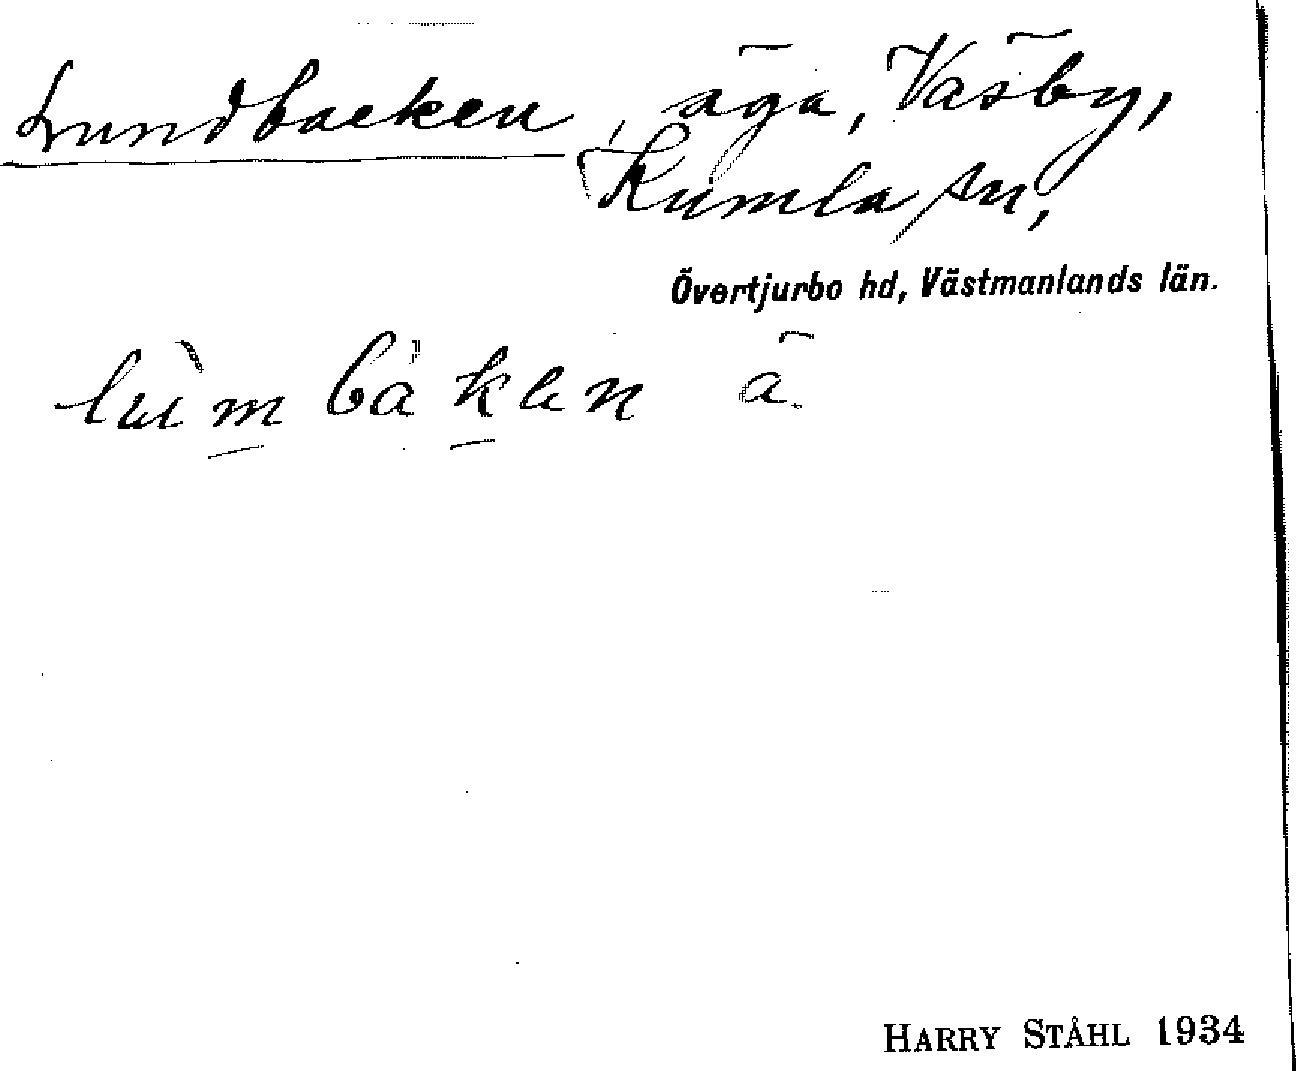 Lundbacken, äga, Väsby,
Kumla sn,
Övertjurbo hd, Västmanlands län.
HARRY STÅHL 1934